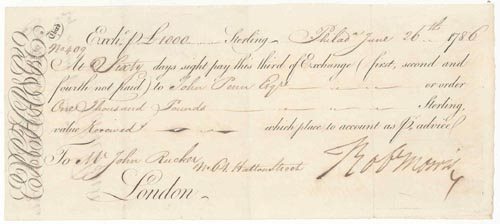 Exchᵃ. p £1000 Sterling. Philadᵃ June 26th 1786
No 409
At Sixty days sight pay this third of Exchange (first, second and
fourth not paid) to John Penn Esqr. or order
One Thousand Pounds Sterling,
value Received which place to account as p advice
To Mr. John Rucker No 64 Hatton Street
London
Robt Morris